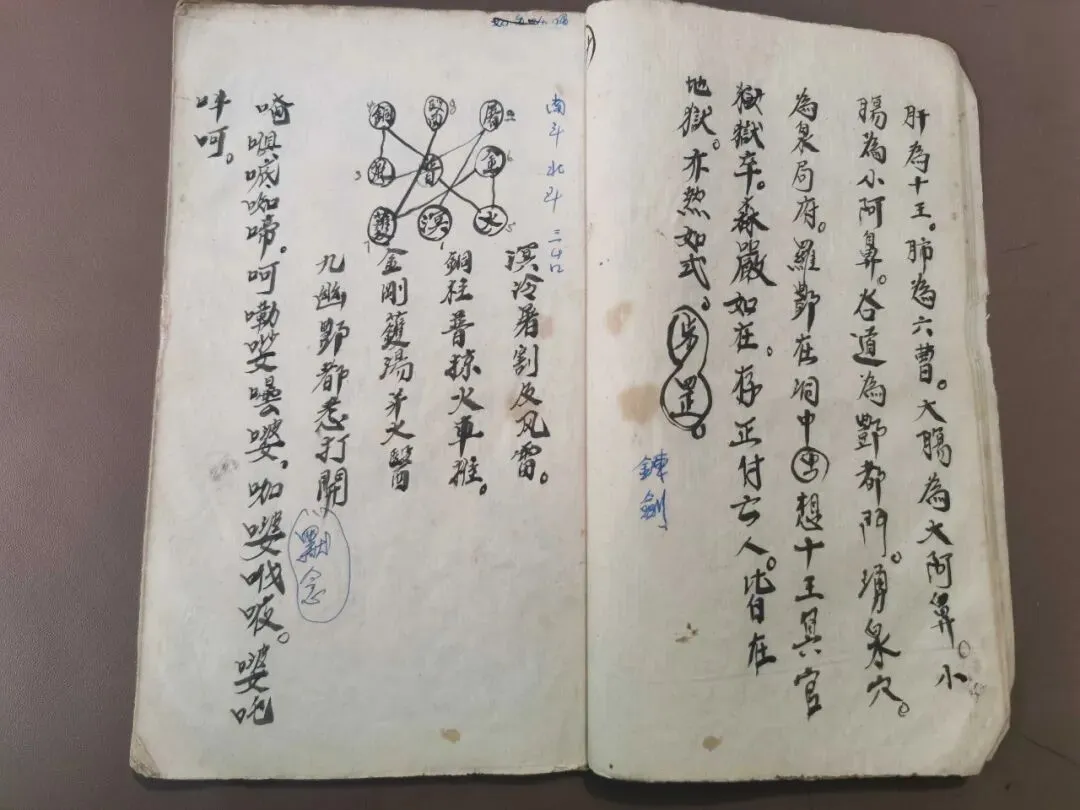 肝為十王。肺為六曹。大腸為大阿鼻。小
腸為小阿鼻。各道為酆都門。湧泉穴。
為泉局府。羅酆在洞中想十王具官
獄獄卒。森嚴如在。存正付亡人。皆在
地獄。亦然如式。步罡。
鍊劍
南斗北斗三台
銅 醫 屠
普 金
溟 火
溟冷屠割及風雷。
銅柱普掠火車推。
金剛鑊湯矛火醫
九幽酆都悉打開
默念
唵呬㗭咖啼。呵嘞㛮曇婆,咖婆哦唆。婆吒
吽呵。